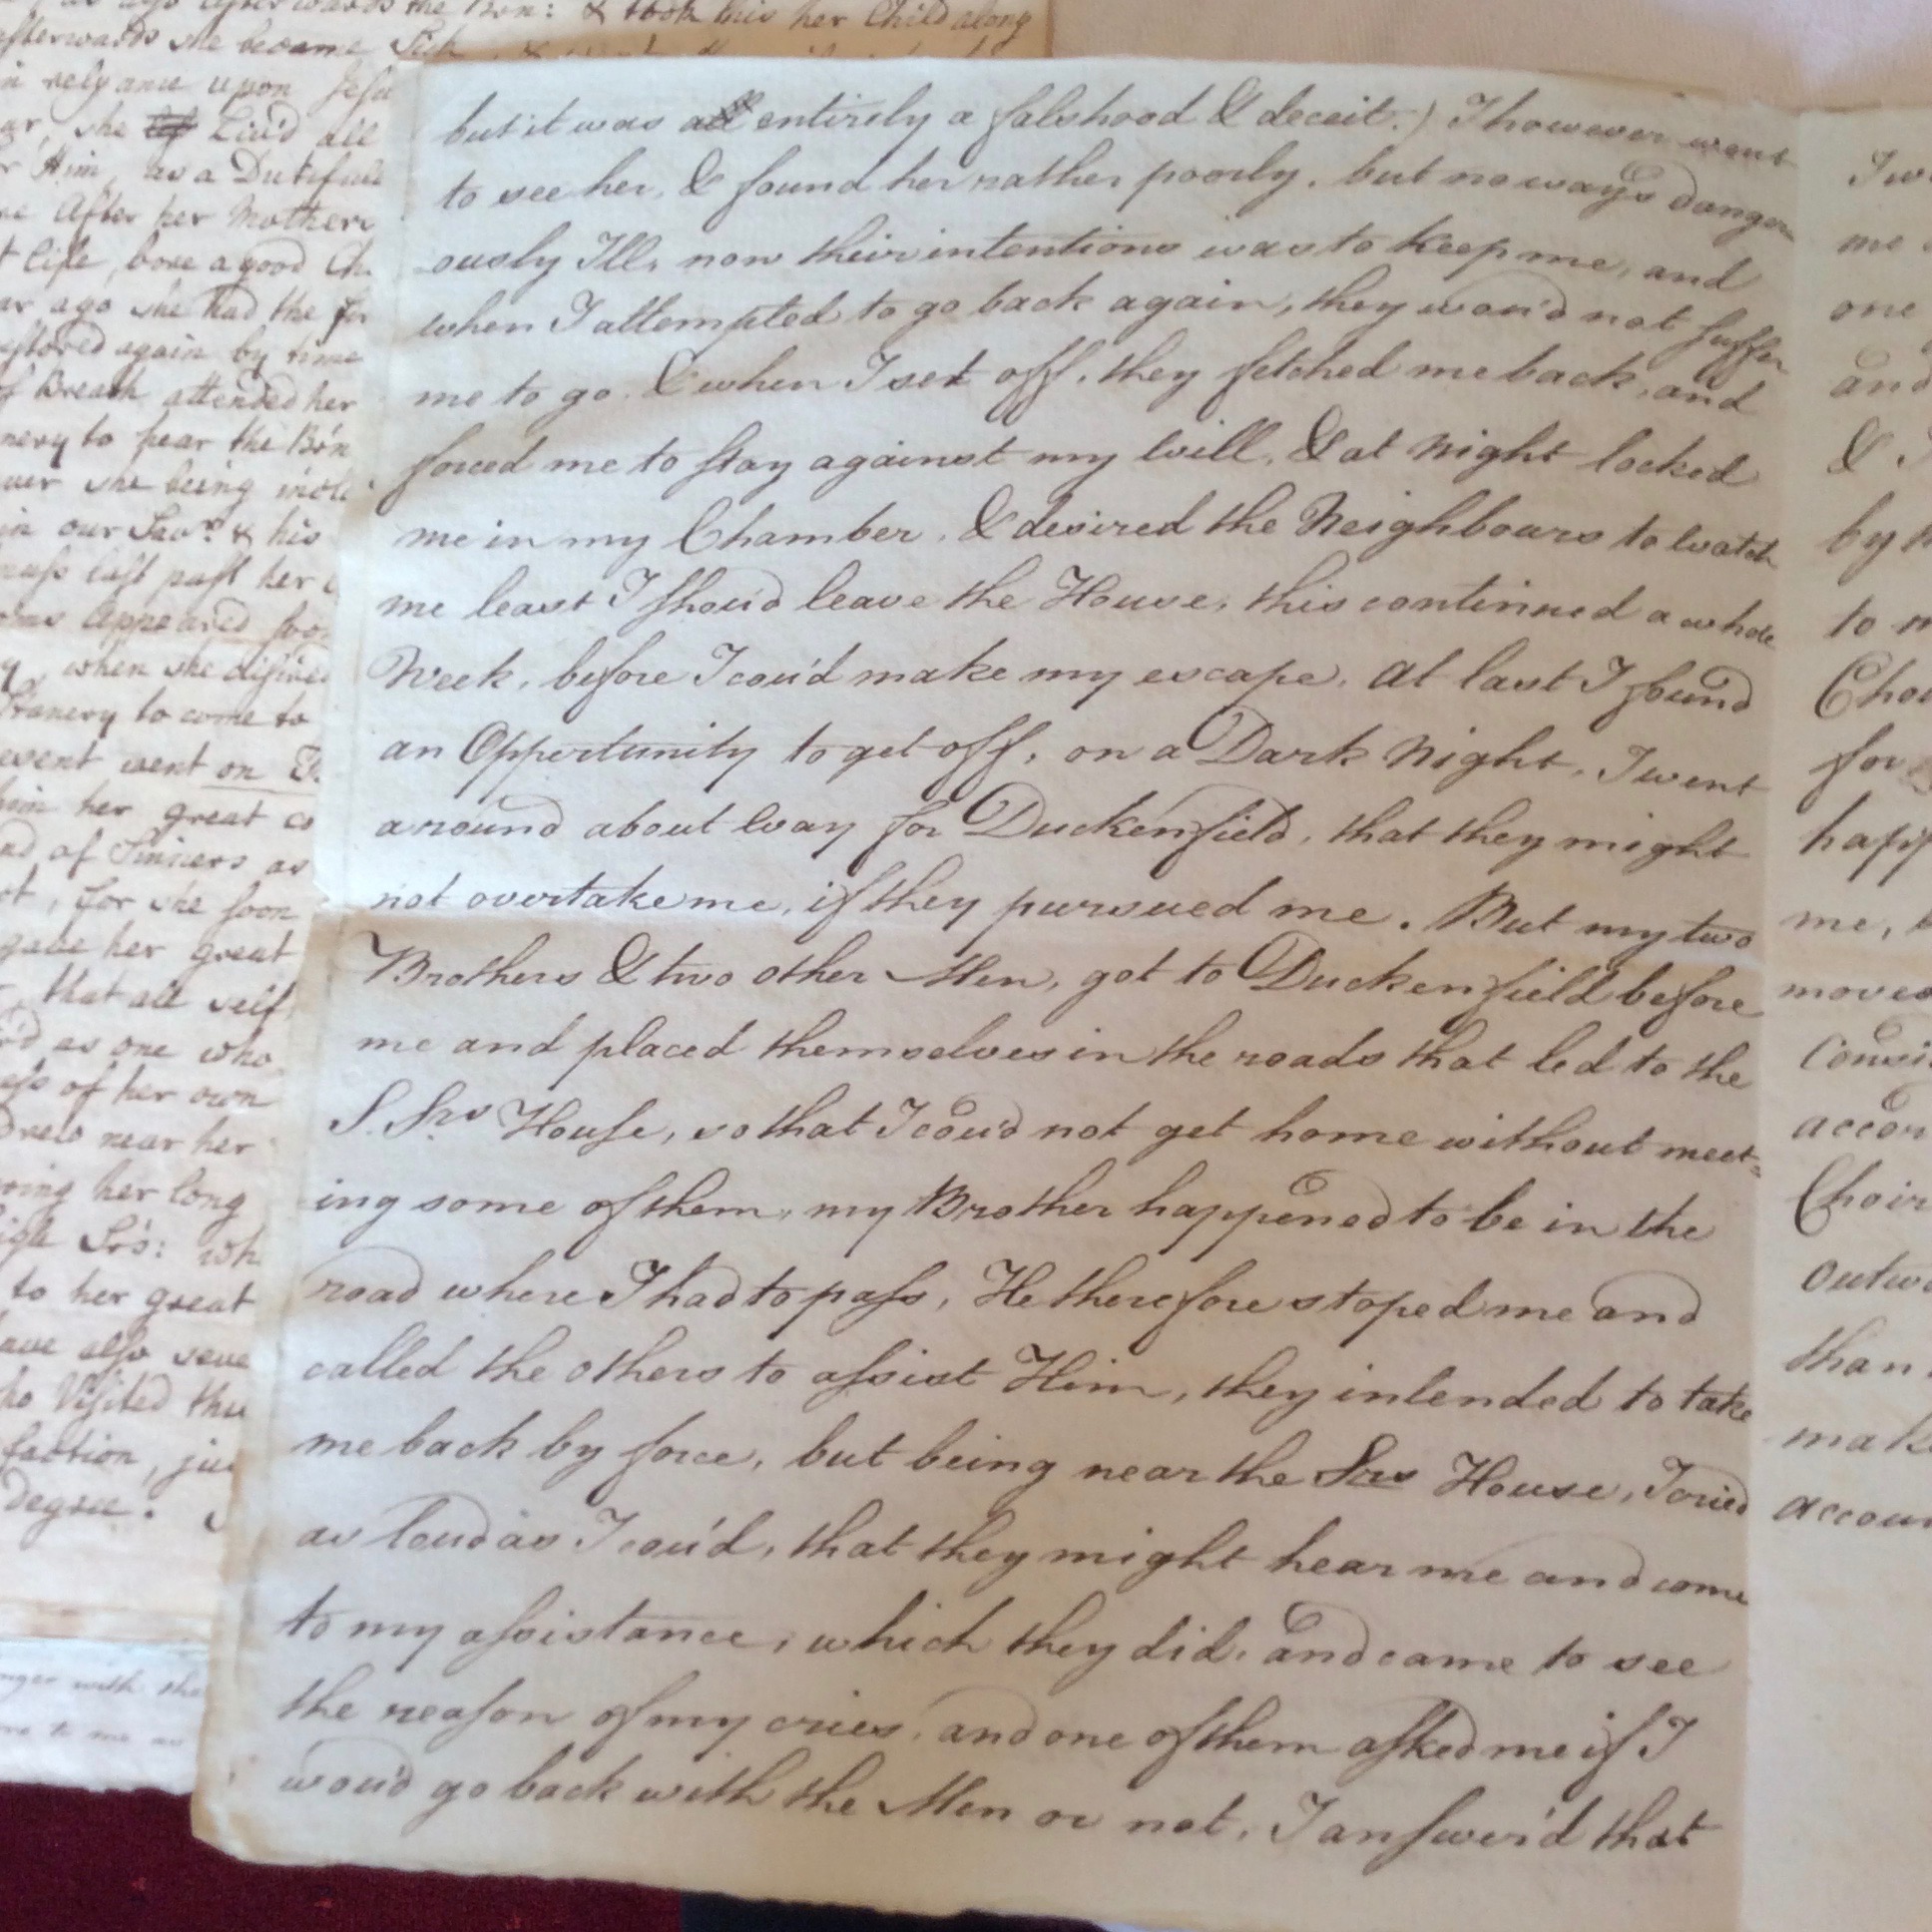 as ago afterwards the Bon: & took this her Child along
afterwards she became Sick
in relyance upon Jesu
ar, she Liv'd all
r Him, as a Dutifull
re After her Mothers
t life, bore a good Ch
ar ago she had the
estored again by time
of Breath attended her
nery to hear the Brn
ver she being
in our Savr. & his
mass last past her
oms Appeared
y, when she desired
ranery to come to
event went on
him her great co
nd of Sinners as
ot, for she soon
gave her great
that all self
'd as one who
ess of her own
Drew near her
ring her long
Srs: wh
to her great
ave also seve
ho Visited thu
faction, jus
Degree.
nger with the
me to me as
but it was all entirely a falshood & deceit.) I however went
to see her, & found her rather poorly, but no ways danger
ously Ill, now their intentions was to keep me, and
when I attempted to go back again, they wou'd not suffer
me to go. & when I set off, they fetched me back, and
forced me to stay against my will, & at Night locked
me in my Chamber, & desired the Neighbours to watch
me least I shou'd leave the House, this continued a whole
Week, before I cou'd make my escape. At last I found
an Oppertunity to get off, on a Dark Night, I went
a round about way for Duckenfield, that they might
not overtake me, if they pursued me. But my two
Brothers & two other Men, got to Duckenfield before
me and placed themselves in the roads that led to the
S. Srs House, so that I cou'd not get home without meet=
ing some of them, my Brother happened to be in the
road where I had to pass, He therefore stoped me and
called the others to assist Him, they intended to take
me back by force, but being near the Srs House, I cried
as loud as I cou'd, that they might hear me and come
to my assistance, which they did, and came to see
the reason of my cries, and one of them asked me if I
wou'd go back with the Men or not, I answer'd that
me
one
and
&
by
to
for
happ
me,
moved
accor
Choir
outw
than
mak
accoun